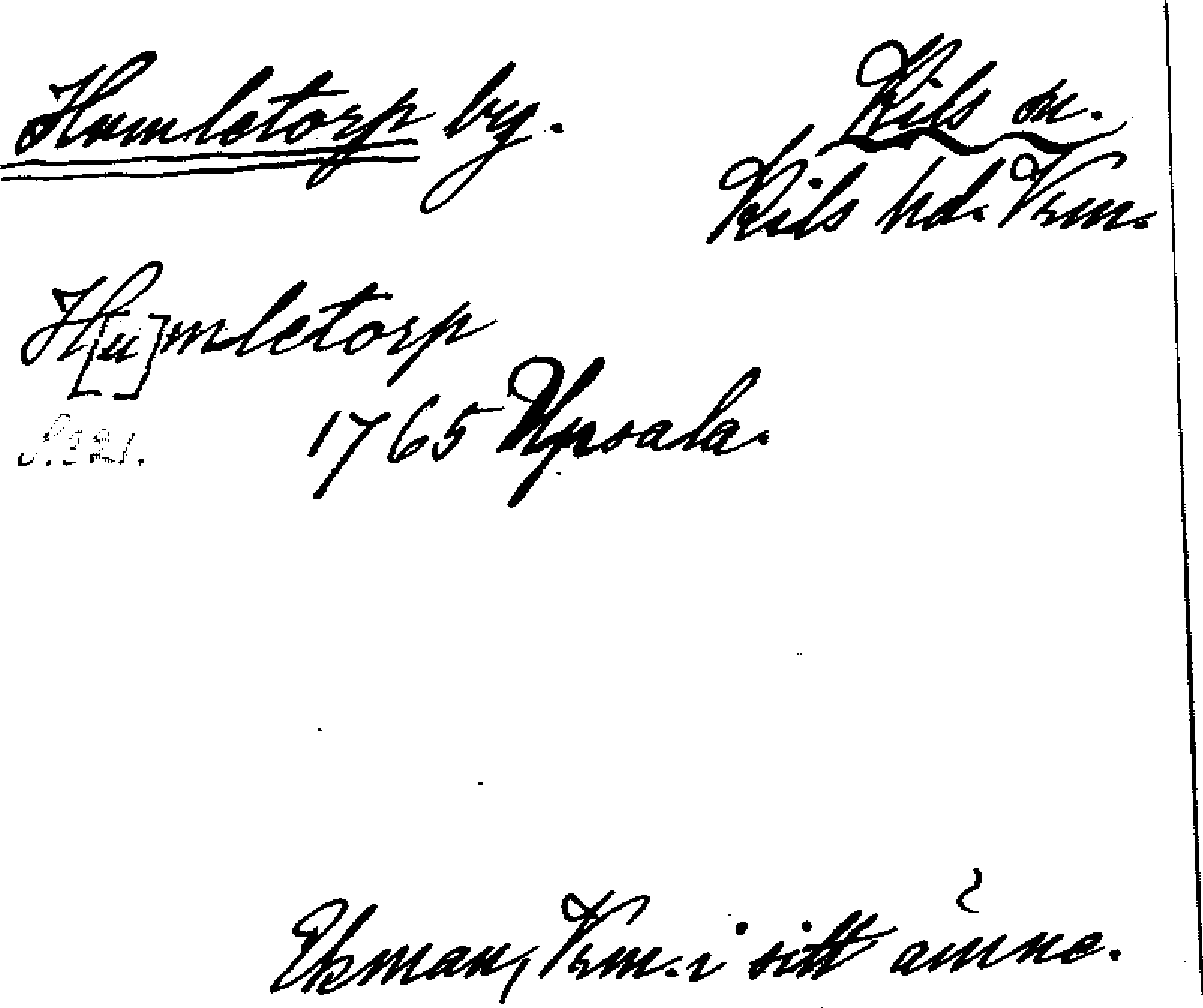 Humletorp by.
Kils sn.
Kils hd. Vrm.
H[u]mletorp
S. 321.
1765 Upsala.
Ekman, Vrm. i sitt ämne.